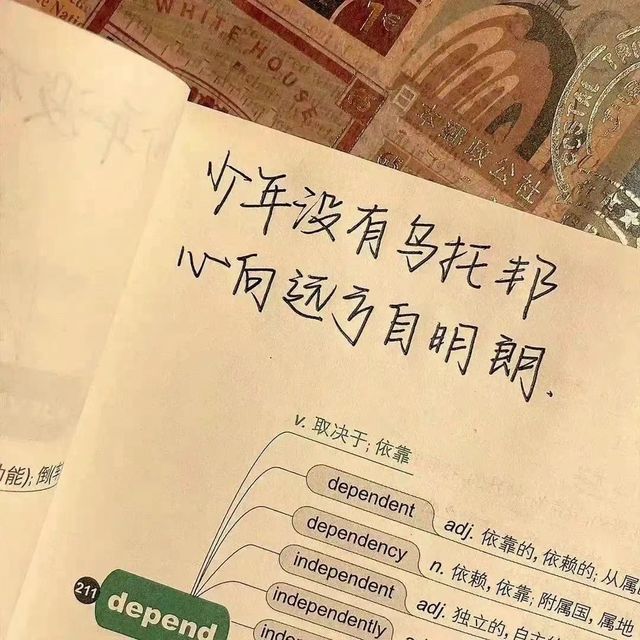 WHITE HOUSE
少年没有乌托邦
心向远方自明朗.
v. 取决于;依靠
dependent
adj. 依靠的,依赖的;从属
dependency
n. 依赖,依靠;附属国,属地
independent
adj. 独立的,自主
independently
211
depend